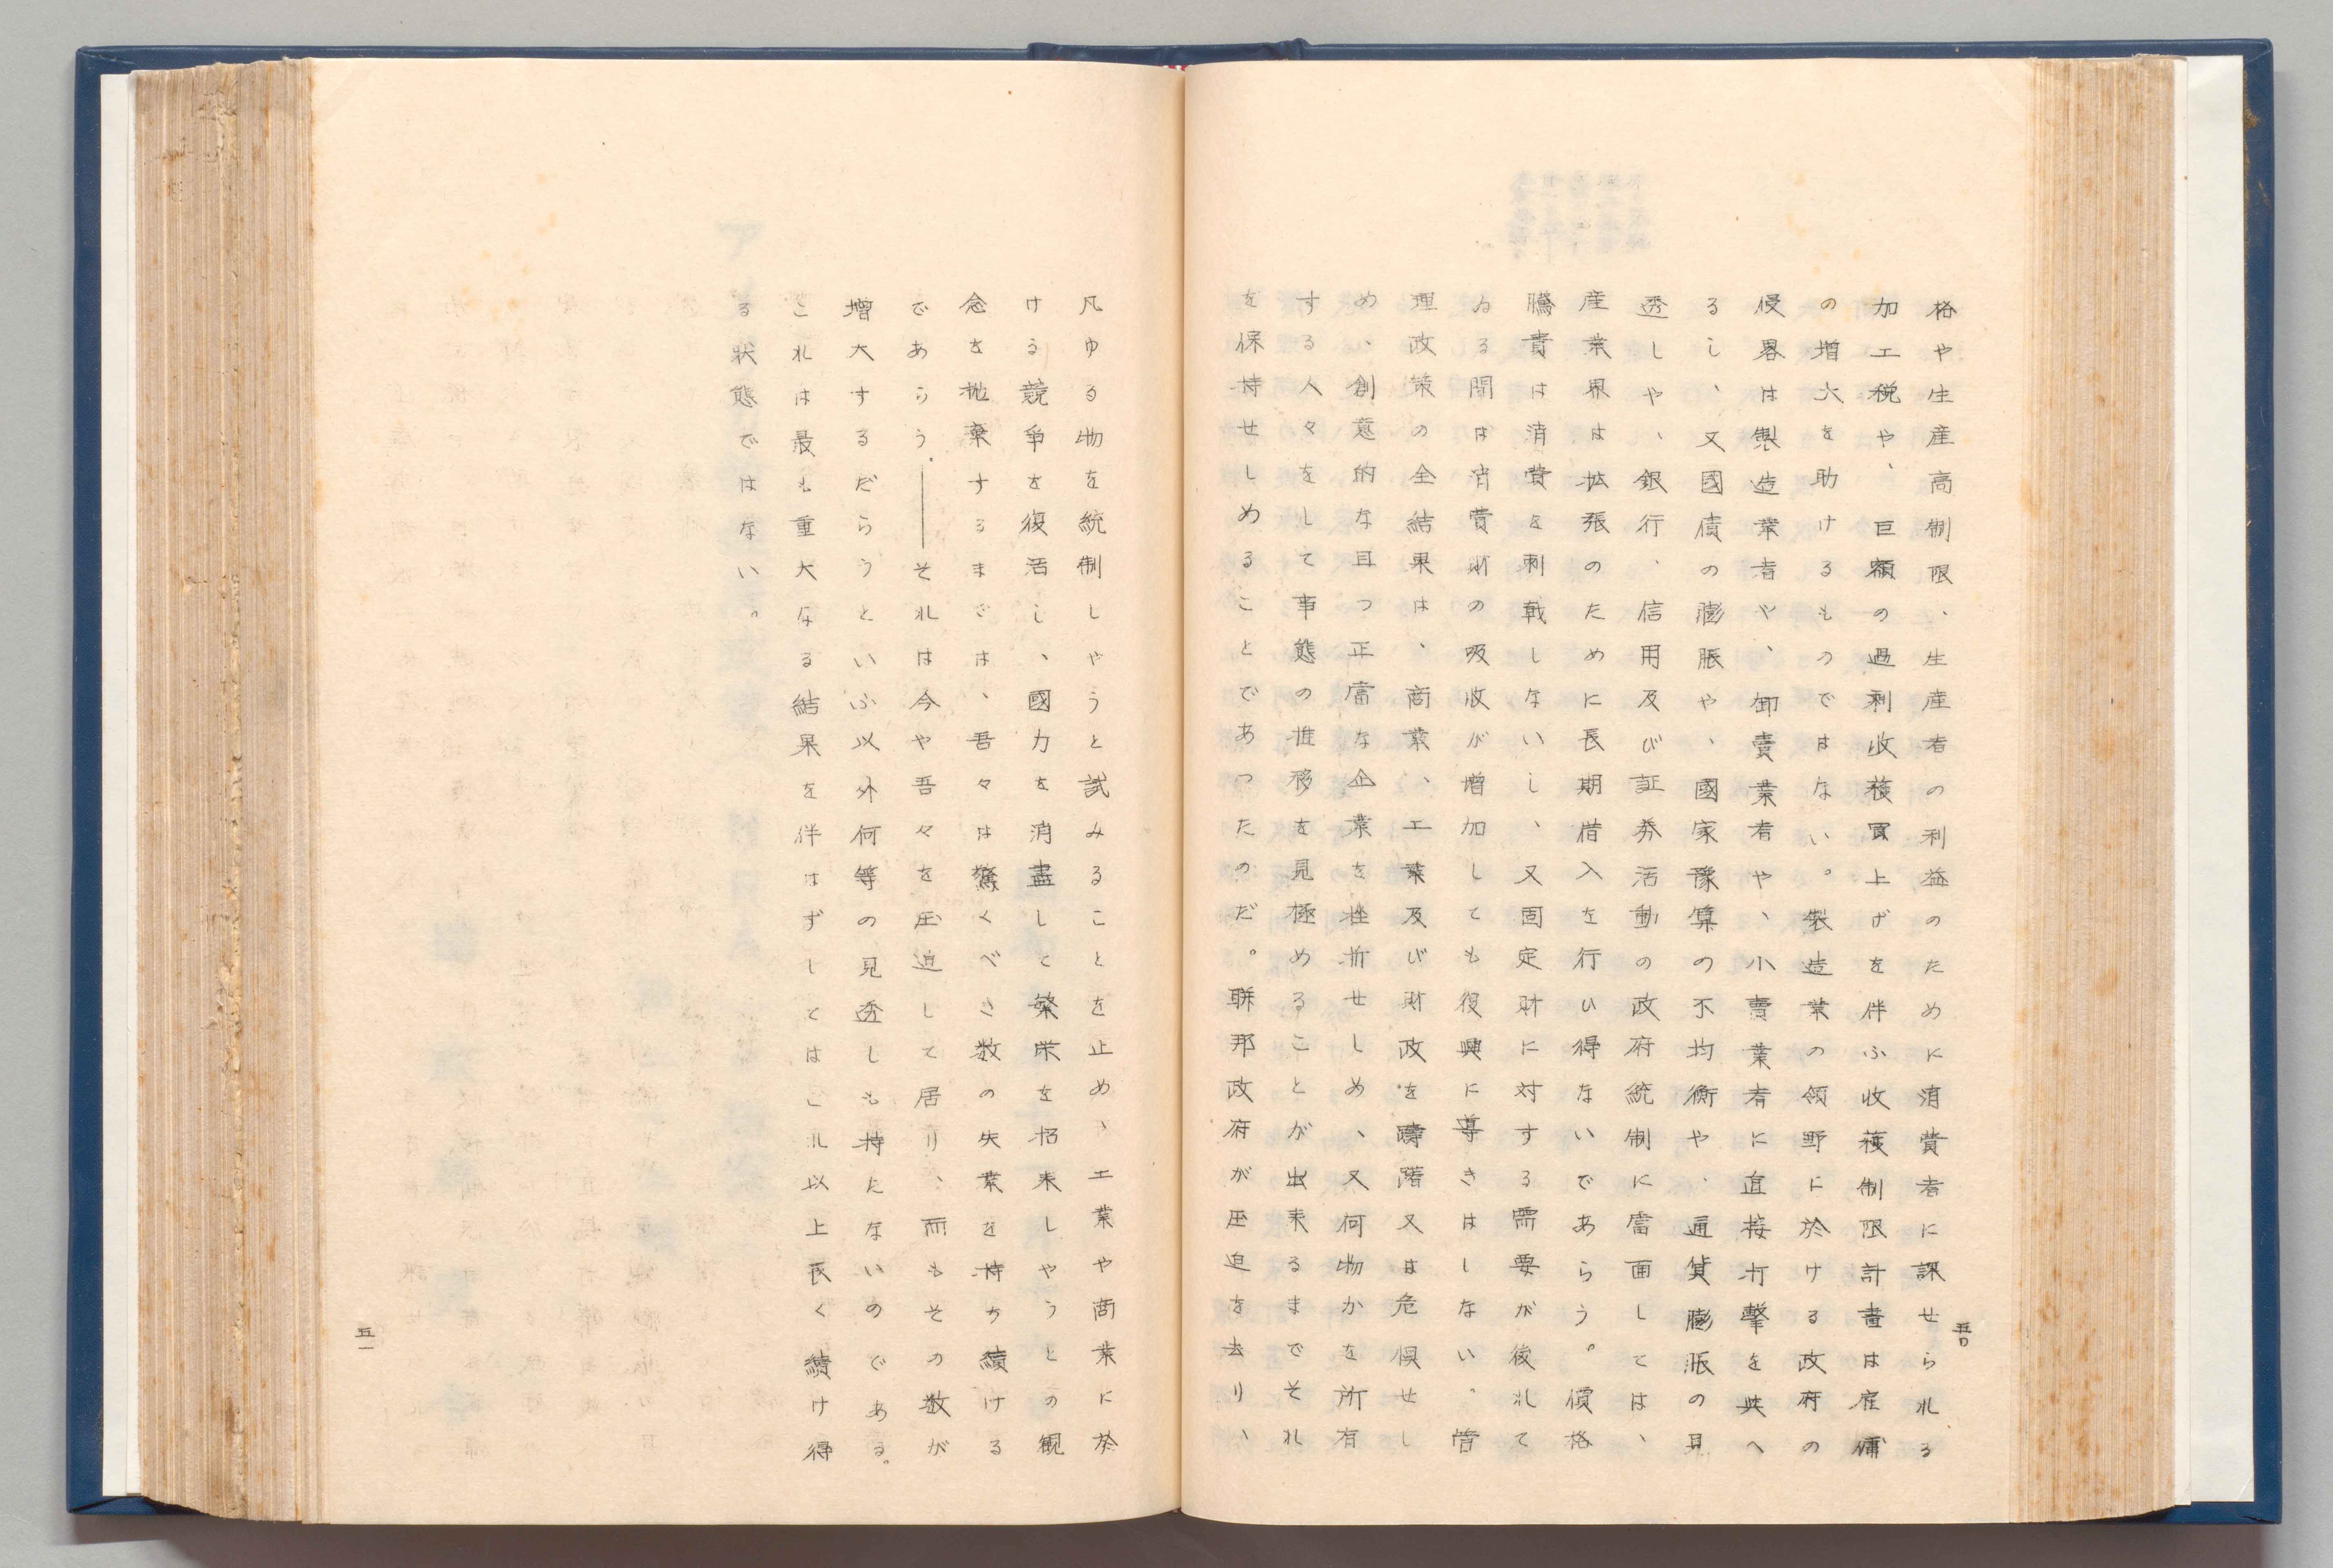 格や生産高制限、生産者の利益のために消費者に課せられる
加工税や、巨額の過剰收穫買上げを伴ふ收穫制限計畫は雇傭
の増大を助けるものではない。製造業の領野に於ける政府の
侵畧は製造業者や、卸賣業者や、小賣業者に直接打擊を與へ
るし、又國債の膨脹や、國家豫算の不均衡や、通貨膨脹の見
透しや、銀行、信用及び証券活動の政府統制に當面しては、
産業界は拡張のために長期借入を行ひ得ないであらう。價格
騰貴は消費を刺戟しないし、又固定財に対する需要が後れて
ゐる間は消費財の吸收が増加しても復興に導きはしない。管
理政策の全結果は、商業、工業及び財政を躊躇又は危惧せし
め、創意的な且つ正當な企業を挫折せしめ、又何物かを所有
する人々をして事態の推移を見極めることが出来るまでそれ
を保持せしめることであつたのだ。聯邦政府が圧迫を去り、
五〇
凡ゆる物を統制しやうと試みることを止め、工業や商業に於
ける競争を復活し、國力を消盡して繁栄を招来しやうとの観
念を抛棄するまでは、吾々は驚くべき数の失業を持ち續ける
であらう。——それは今や吾々を圧迫して居り、而もその数が
増大するだらうといふ以外何等の見透しも持たないのである。
これは最も重大なる結果を伴はずしてはこれ以上長く續け得
る状態ではない。
五一